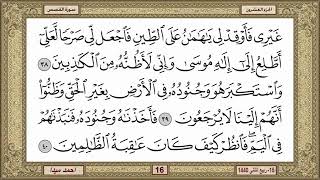 الجزء العشرين
سورة القصص
غَيۡرِي فَأَوۡقِدۡ لِي يَٰهَٰمَٰنُ عَلَى ٱلطِّينِ فَٱجۡعَل لِّي صَرۡحٗا لَّعَلِّيٓ
أَطَّلِعُ إِلَىٰٓ إِلَٰهِ مُوسَىٰ وَإِنِّي لَأَظُنُّهُۥ مِنَ ٱلۡكَٰذِبِينَ ٣٨
وَٱسۡتَكۡبَرَ هُوَ وَجُنُودُهُۥ فِي ٱلۡأَرۡضِ بِغَيۡرِ ٱلۡحَقِّ وَظَنُّوٓاْ
أَنَّهُمۡ إِلَيۡنَا لَا يُرۡجَعُونَ ٣٩ فَأَخَذۡنَٰهُ وَجُنُودَهُۥ فَنَبَذۡنَٰهُمۡ
فِي ٱلۡيَمِّۖ فَٱنظُرۡ كَيۡفَ كَانَ عَٰقِبَةُ ٱلظَّٰلِمِينَ ٤٠
16
1440